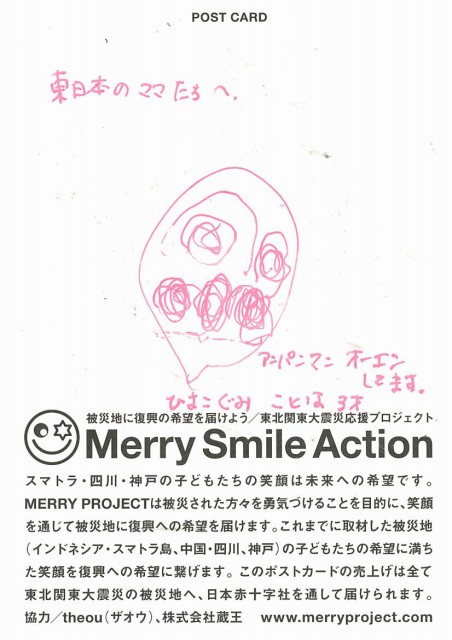 POST CARD
東日本のママたちへ.
アンパンマン オーエン
してます。
ひよこぐみ ことは 3才
被災地に復興の希望を届けよう／東北関東大震災応援プロジェクト
Merry Smile Action
スマトラ・四川・神戸の子どもたちの笑顔は未来への希望です。
MERRY PROJECTは被災された方々を勇気づけることを目的に、笑顔
を通じて被災地に復興への希望を届けます。これまでに取材した被災地
（インドネシア・スマトラ島、中国・四川、神戸）の子どもたちの希望に満ち
た笑顔を復興への希望に繋げます。このポストカードの売上げは全て
東北関東大震災の被災地へ、日本赤十字社を通して届けられます。
協力／theou（ザオウ）、株式会社蔵王　www.merryproject.com